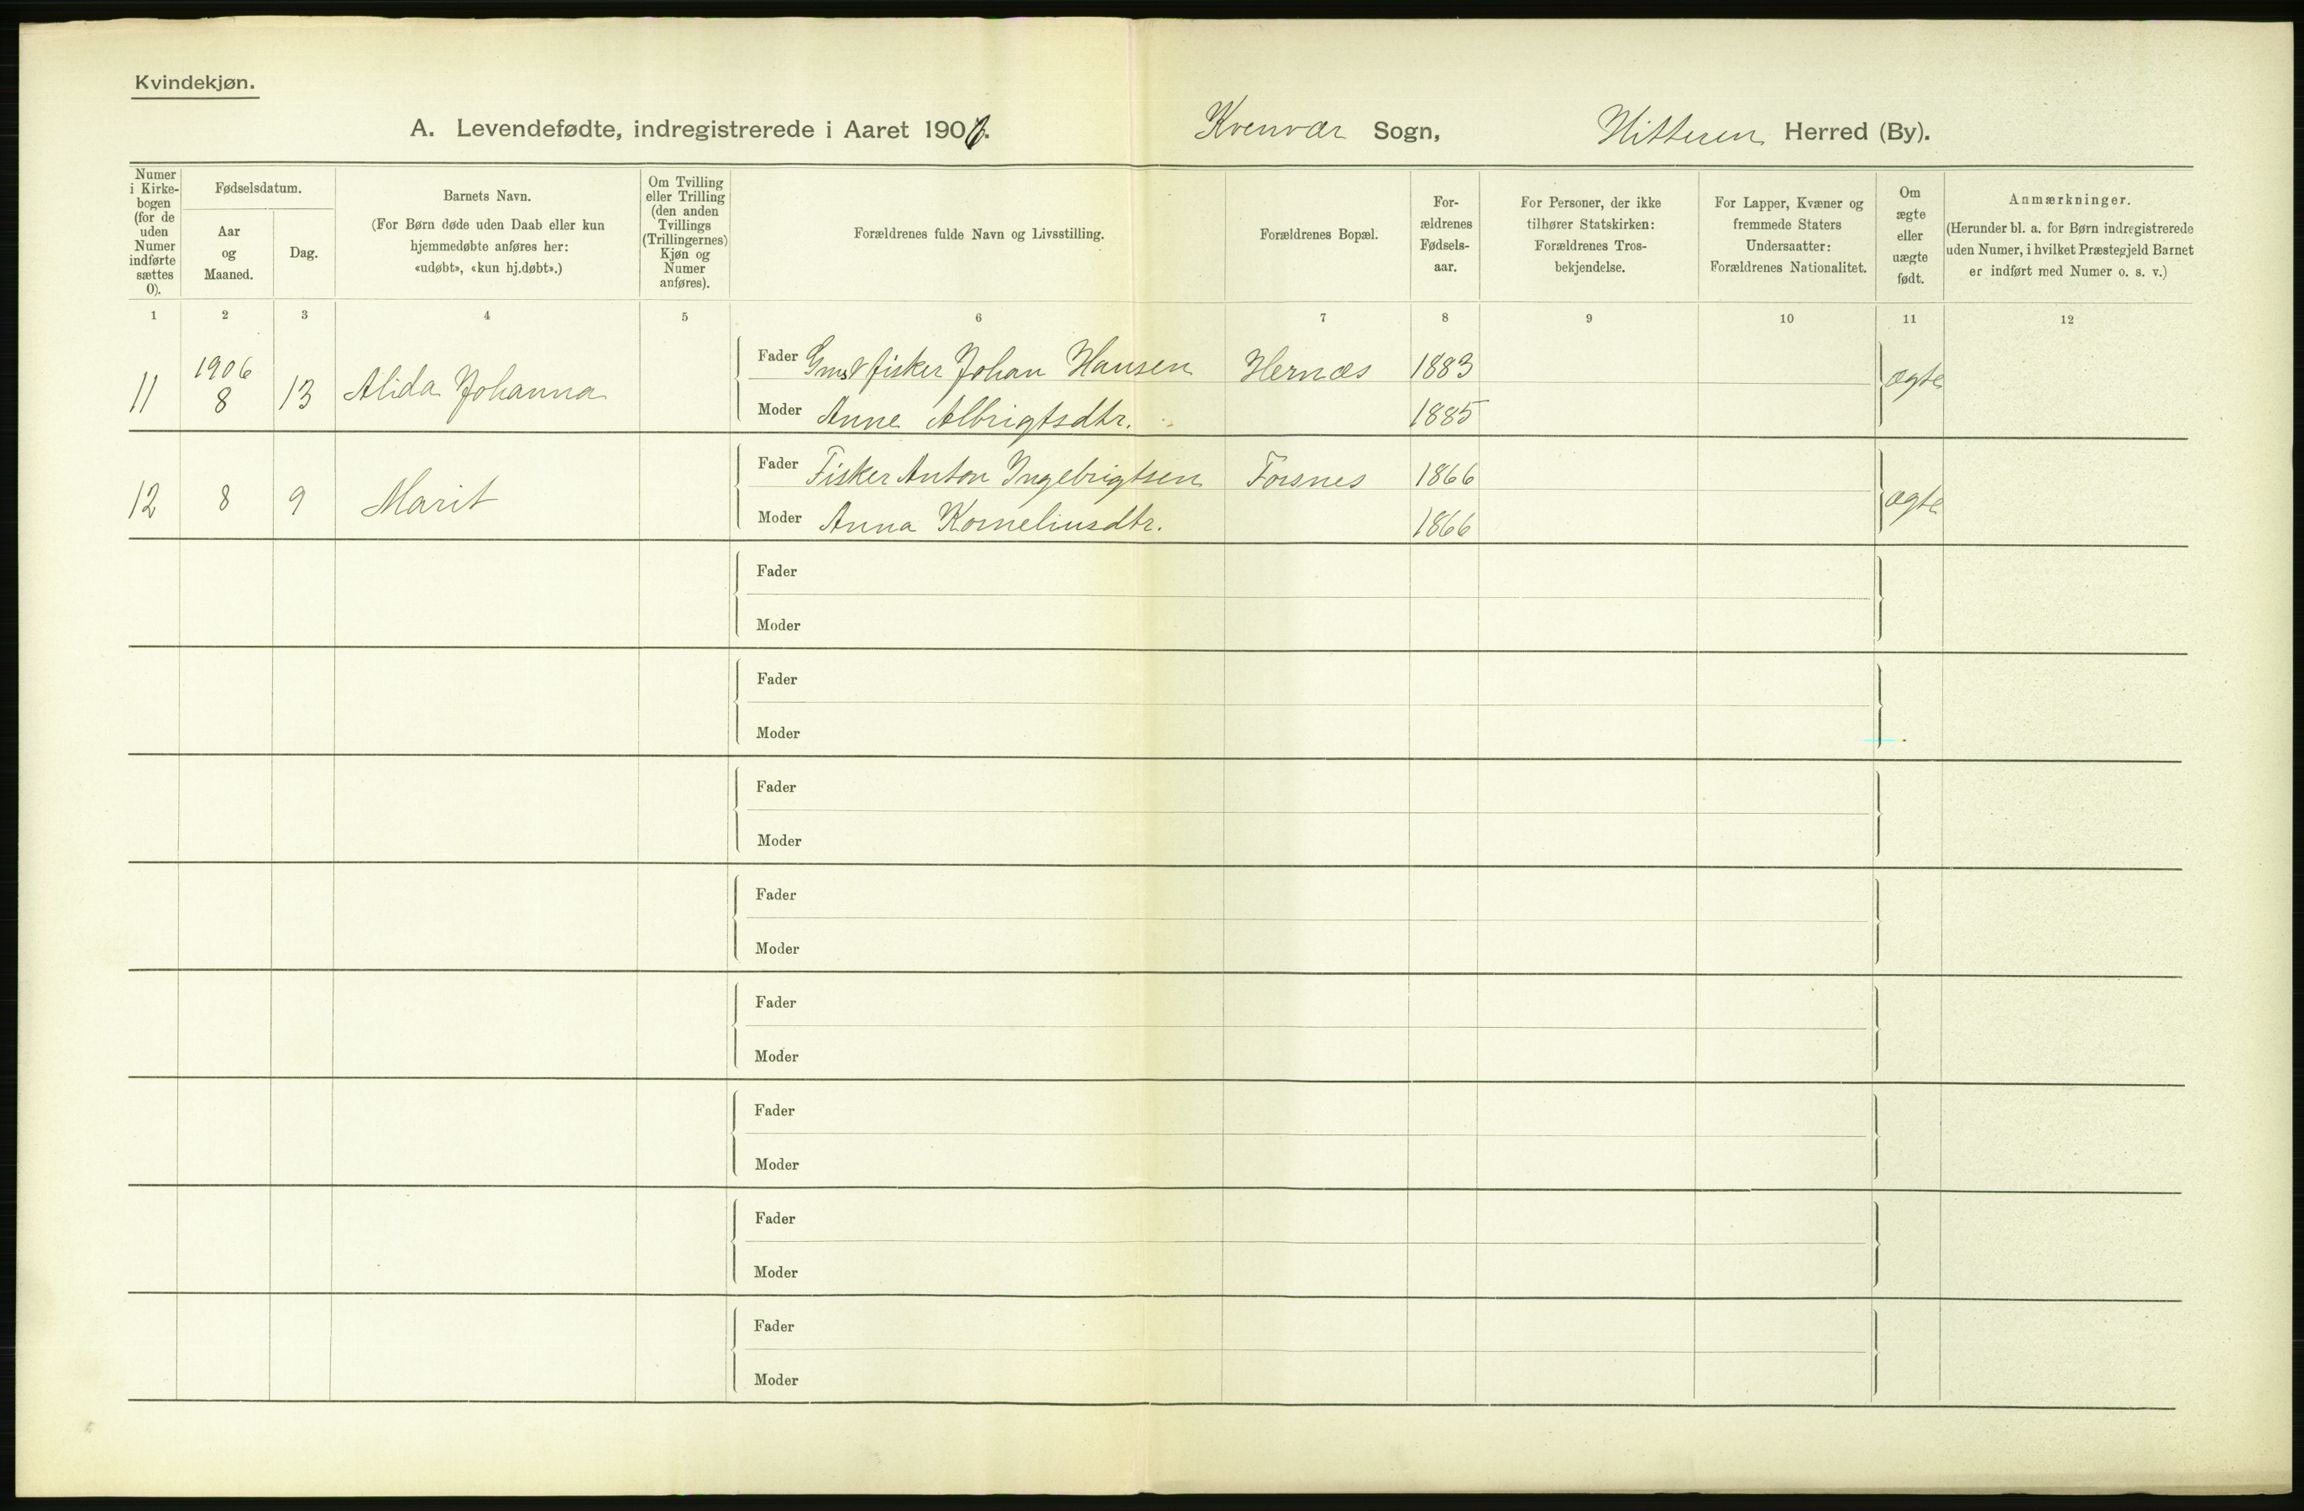 Kvindekjøn.
A. Levendefødte, indregistrerede i Aaret 1906. Kvenvær Sogn, Hitteren Herred (By).
Numer i Kirkebogen (for de uden Numer indførte sættes 0).
Fødselsdatum.
Aar og Maaned.
Dag.
Barnets Navn.
(For Børn døde uden Daab eller kun hjemmedøbte anføres her: «udøbt», «kun hj.døbt».)
Om Tvilling eller Trilling (den anden Tvillings (Trillingernes) Kjøn og Numer anføres).
Forældrenes fulde Navn og Livsstilling.
Forældrenes Bopæl.
Forældrenes Fødselsaar.
For Personer, der ikke tilhører Statskirken: Forældrenes Trosbekjendelse.
For Lapper, Kvæner og fremmede Staters Undersaatter: Forældrenes Nationalitet.
Om ægte eller uægte født.
Anmærkninger.
(Herunder bl. a. for Børn indregistrerede uden Numer, i hvilket Præstegjeld Barnet er indført med Numer o. s. v.)
1 2 3 4 5 6 7 8 9 10 11 12
1906
11 8 13 Alida Johanna Fader fisker Johan Hansen Hernæs 1883 ægte
Moder Anne Albrigtsdtr. 1885
12 8 9 Marit Fader Fisker Anton Ingebrigtsen Forsnes 1866 ægte
Moder Anna Korneliusdtr. 1866
Fader
Moder
Fader
Moder
Fader
Moder
Fader
Moder
Fader
Moder
Fader
Moder
Fader
Moder
Fader
Moder